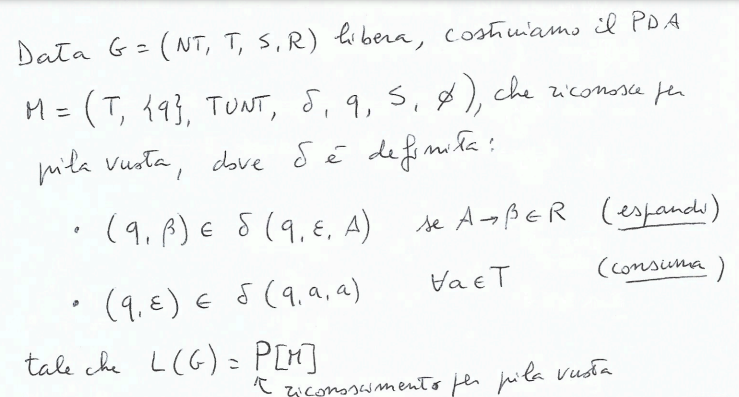 Data G = (NT, T, S, R) libera, costruiamo il PDA
M = (T, {q}, T∪NT, δ, q, S, ∅), che riconosce per
pila vuota, dove δ è definita:
• (q, β) ∈ δ (q, ε, A) se A → β ∈ R (espandi)
• (q, ε) ∈ δ (q, a, a) ∀a ∈ T (consuma)
tale che L(G) = P[M]
↑ riconoscimento per pila vuota